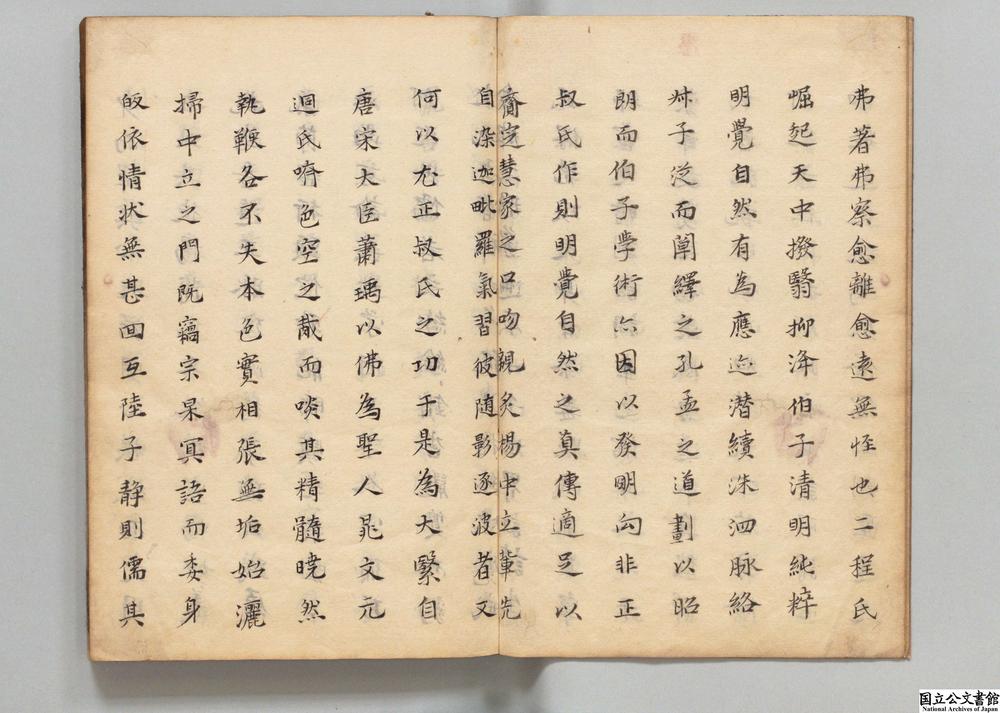 弗著弗察愈離愈遠無恠也二程氏
崛起天中撥翳抑浲伯子清明純粹
明覺自然有為應迹潜續洙泗脉絡
叔子泛而闡繹之孔孟之道劃以昭
朗而伯子學術亦因以發明向非正
叔氏作則明覺自然之真傳適足以
齎定慧家之口吻親炙楊中立輩先
自染迦毗羅氣習彼随影逐波者又
何以尤正叔氏之功于是為大緊自
唐宋大臣蕭瑀以佛為聖人晁文元
迴氏嚌色空之胾而啖其精髓曉然
執鞭各不失本色實相張無垢始灑
掃中立之門既竊宗杲冥語而委身
皈依情状無甚囬互陸子静則儒其
国立公文書館
National Archives of Japan